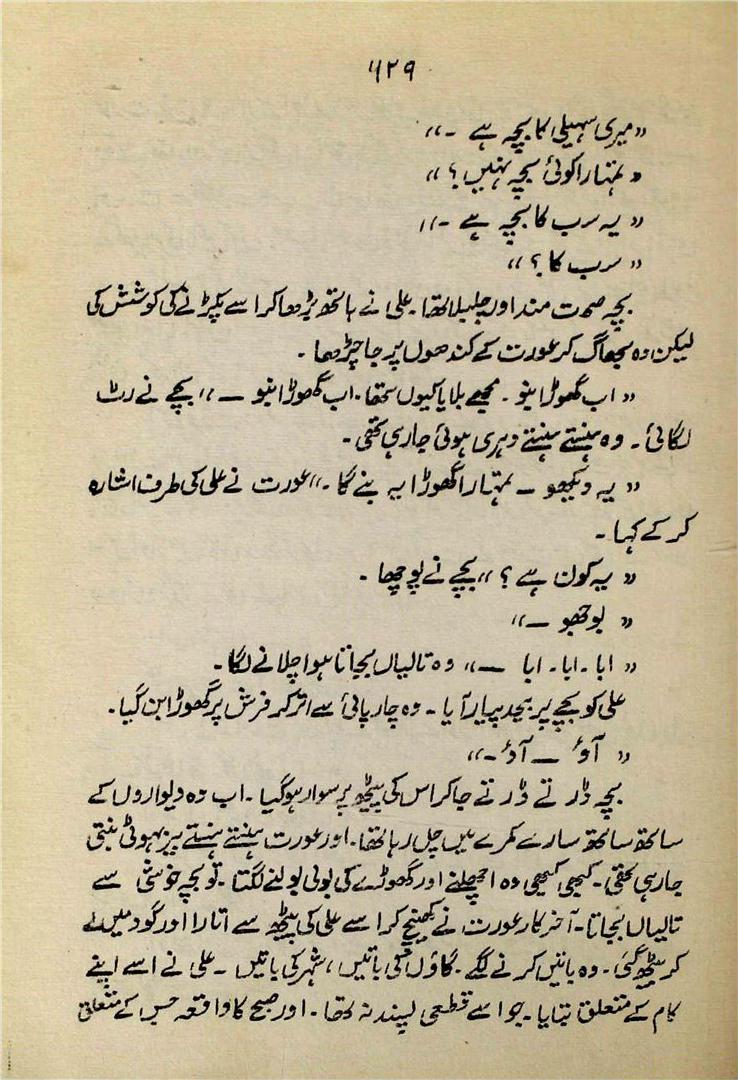 ۶۲۹
"میری سہیلی کا بچہ ہے ۔"
"تمہارا کوئی بچہ نہیں؟"
"یہ سرب کا بچہ ہے ۔"
"سرب کا؟"
بچہ صحت مند اور چلبلا تھا۔ علی نے ہاتھ بڑھا کر اسے پکڑنے کی کوشش کی
لیکن وہ بھاگ کر عورت کے کندھوں پر جا چڑھا ۔
"اب گھوڑا بنو ۔ مجھے بلایا کیوں تھا۔ اب گھوڑا بنو —" بچے نے رٹ
لگائی ۔ وہ ہنستے ہنستے دہری ہوئی جا رہی تھی ۔
"یہ دیکھو — تمہارا گھوڑا یہ بنے گا ۔" عورت نے علی کی طرف اشارہ
کر کے کہا ۔
"یہ کون ہے؟" بچے نے پوچھا ۔
"بوجھو —"
"ابا ۔ ابا ۔ ابا —" وہ تالیاں بجاتا ہوا چلانے لگا ۔
علی کو بچے پر بیحد پیار آیا ۔ وہ چارپائی سے اتر کر فرش پر گھوڑا بن گیا ۔
"آؤ — آؤ ۔"
بچہ ڈرتے ڈرتے جا کر اس کی پیٹھ پر سوار ہو گیا ۔ اب وہ دیواروں کے
ساتھ ساتھ سارے کمرے میں چل رہا تھا۔ اور عورت ہنستے ہنستے بیہوش بنتی
جا رہی تھی ۔ کبھی کبھی وہ اچھلنے اور گھوڑے کی بولی بولنے لگتا ۔ تو بچہ خوشی سے
تالیاں بجاتا ۔ آخر کار عورت نے کھینچ کر اسے علی کی پیٹھ سے اتارا اور گود میں لے
کر بیٹھ گئی ۔ وہ باتیں کرنے لگے ۔ گاؤں کی باتیں ، شہر کی باتیں ۔ علی نے اسے اپنے
کام کے متعلق بتایا ۔ جو اسے قطعی پسند نہ تھا ۔ اور صبح کا واقعہ جس کے متعلق